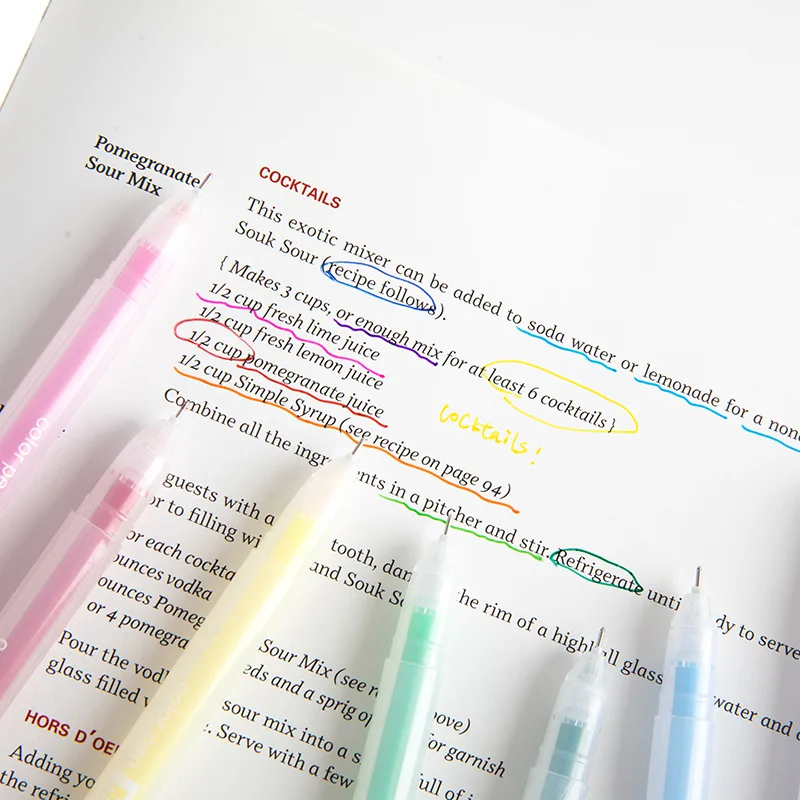 Pomegranate
Sour Mix
COCKTAILS
This exotic mixer can be added to soda water or lemonade for a non
Souk Sour (recipe follows).
{ Makes 3 cups, or enough mix for at least 6 cocktails }
1/2 cup fresh lime juice
1/2 cup fresh lemon juice
1/2 cup pomegranate juice
1/2 cup Simple Syrup (see recipe on page 94)
cocktails!
Combine all the ingr nts in a pitcher and stir. Refrigerate unti dy to serve
guests with a tooth, dan he rim of a highball glass water and
or to filling wi and Souk S
or each cockta
ounces vodka
ounces Pomeg Sour Mix (see r ove)
or 4 pomegra eds and a sprig o for garnish
Pour the vod sour mix into a s ull of i
glass filled . Serve with a few
HORS D'OE
Adding yo
the refri
color pe